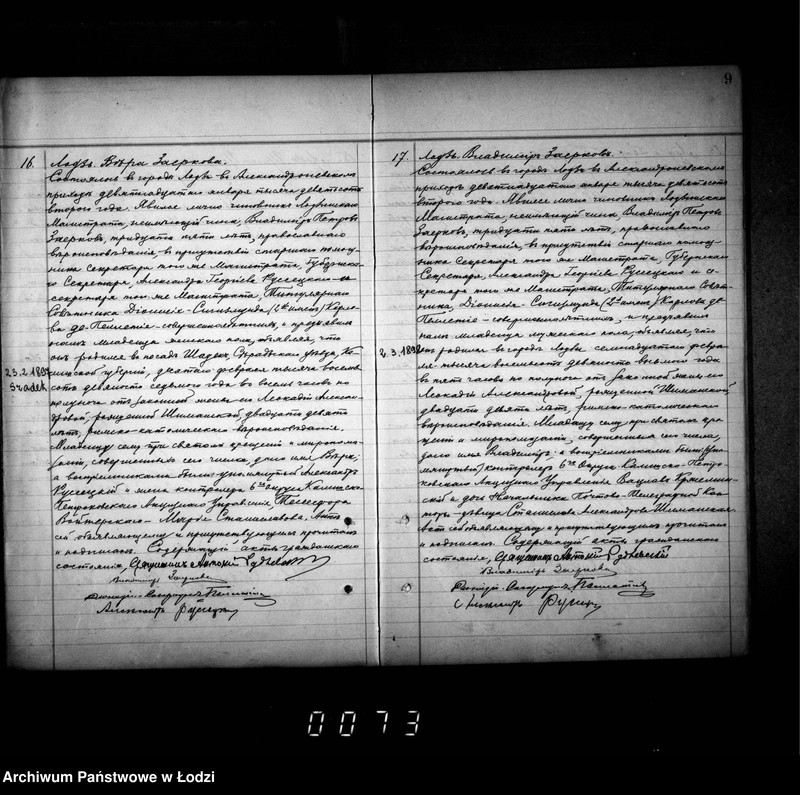 9
16. Лодзь. Вѣра Заеркова.
Состоялось въ городѣ Лодзи въ Александроневскомъ
приходѣ девятнадцатаго января тысяча девятьсотъ
второго года. Явился лично чиновникъ Лодзинскаго
Магистрата, неимѣющій чина, Владиміръ Петровъ
Заерковъ, тридцати пяти лѣтъ, православнаго
вѣроисповѣданія, въ присутствіи старшаго помощ-
ника Секретаря того же Магистрата, Губернска-
го Секретаря, Александра Георгіева Русецкаго и
секретаря того же Магистрата, Титулярнаго
Совѣтника Діонисія-Сигизмунда (2хъ именъ) Карло-
ва совершеннолѣтнихъ, и предъявилъ
намъ младенца женскаго пола, объявляя, что
онъ родился въ посадѣ Шадекъ, Сѣрадзскаго уѣзда, Ка-
лишской губерніи, десятаго февраля тысяча восемь-
сотъ девяносто седьмого года въ восемь часовъ по
полудни отъ законной жены его Леокадіи Алексан-
дровой, рожденной Шиманской, двадцати девяти
лѣтъ, римско-католическаго вѣроисповѣданія.
Младенцу сему при святомъ крещеніи и миропома-
заніи, совершенныхъ сего числа, дано имя Вѣра,
а воспріемниками были: упомянутый Александръ
Русецкій и жена контролера 6го округа Калишско-
Петроковскаго Акцизнаго Управленія,
Марья Станиславова. Актъ
сей объявляющему и присутствующимъ прочитанъ
и подписанъ. Содержащій акты гражданскаго
состоянія, Священникъ Антоній Рудлевскій
Владиміръ Заерковъ
Александръ Русецкій
23.2.1897
Szadek
17. Лодзь. Владиміръ Заерковъ.
Состоялось въ городѣ Лодзи въ Александроневскомъ
приходѣ девятнадцатаго января тысяча девятьсотъ
второго года. Явился лично чиновникъ Лодзинскаго
Магистрата, неимѣющій чина Владиміръ Петровъ
Заерковъ, тридцати пяти лѣтъ, православнаго
вѣроисповѣданія, въ присутствіи старшаго помощ-
ника Секретаря того же Магистрата, Губернскаго
Секретаря, Александра Георгіева Русецкаго и се-
кретаря того же Магистрата, Титулярнаго Совѣт-
ника, Діонисія-Сигизмунда (2хъ именъ) Карлова
совершеннолѣтнихъ, и предъявилъ
намъ младенца мужескаго пола, объявляя, что
онъ родился въ городѣ Лодзи семнадцатаго февра-
ля тысяча восемьсотъ девяносто восьмого года
въ пять часовъ по полуночи отъ законной жены его
Леокадіи Александровой, рожденной Шиманской,
двадцати девяти лѣтъ, римско-католическаго
вѣроисповѣданія. Младенцу сему при святомъ кре-
щеніи и миропомазаніи, совершенныхъ сего числа,
дано имя Владиміръ, а воспріемниками были:
контролеръ 6го округа Калишско-Петро-
ковскаго Акцизнаго Управленія Вацлавъ
и дочь Начальника Почтово-Телеграфной Кон-
торы, дѣвица Александрова Шиманская.
Актъ сей объявляющему и присутствующимъ прочитанъ
и подписанъ. Содержащій акты гражданскаго
состоянія, Священникъ Антоній Рудлевскій
Владиміръ Заерковъ
Александръ Русецкій
2.3.1898
0073
Archiwum Państwowe w Łodzi